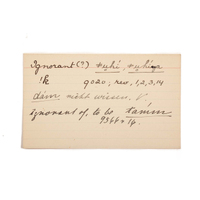 Ignorant (?) ruhi, ruhiga
!k 9020, rev, 1, 2, 3, 14
dám, nicht wissen, V
ignorant of, to be tamm
9364 + 14